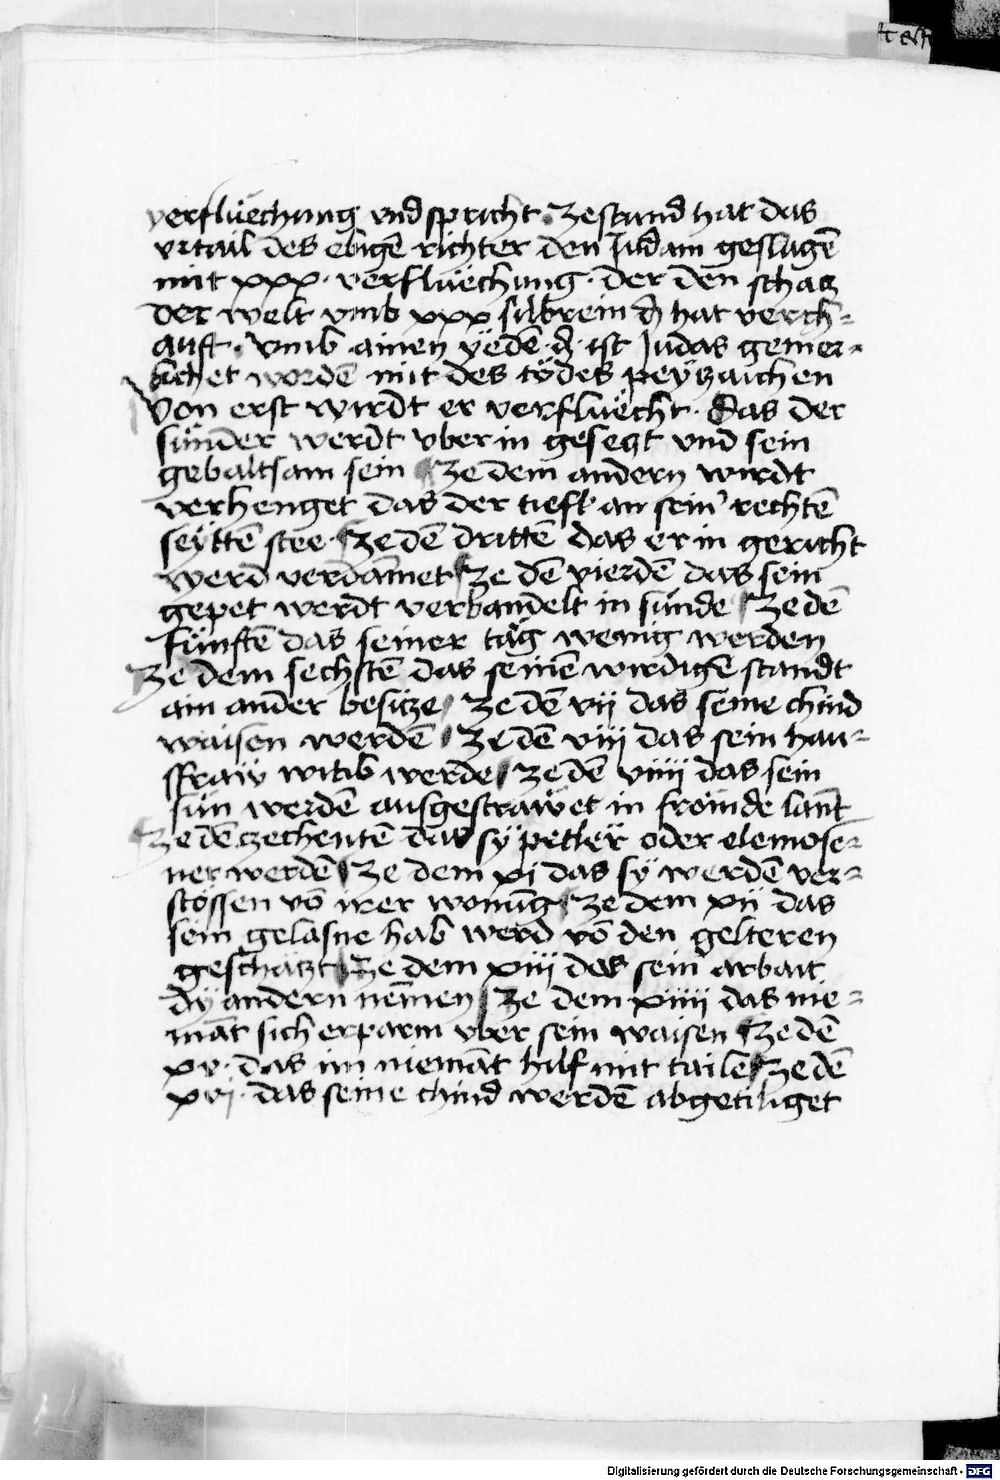 verfluechung vnd spricht · Zestund hat das
vrtail des ebigē richter den Judam geslagē
mit xxx · verfluechung · der den schacz
der welt vmb xxx silbrein ₰ hat verch-
auft · Vmb ainen yedē ₰ ist Judas gemer-
chet wordē mit des tödes peyzaichen
Von erst wirdt er verfluecht · Das der
sünder werdt vber in gesetzt vnd sein
gebaltsam sein Ze dem andern wirdt
verhenget das der tiefl an seinr rechtē
seyttē stee · Ze dē drittē das er in gericht
werd verdāmet Ze dē vierdē das sein
gepet werdt verbandelt in sünde Ze dē
fünftē das seiner täg wenig werden
Ze dem sechstē das seinē wirdigē standt
ain ander besitze Ze dē vij das seine chind
waisen werdē Ze dē viij das sein hau-
sfraw witib werde Ze dē viiij das sein
sün werdē ausgestrawet in frömde lant
Ze dē zechentē das sy petler oder elemose-
ner werdē Ze dem xj das sy werdē ver-
stössen vō irer wonūg Ze dem xij das
sein gelasne hab werd vō den gelteren
geschätzt Ze dem xiij das sein arbait
dy andern nēmen Ze dem xiiij das nie-
māt sich erparm vber sein waisen Ze dē
xv · das im niemāt hilf mit tailē Ze dē
xvj · das seine chind werdē abgetiliget
Digitalisierung gefördert durch die Deutsche Forschungsgemeinschaft - DFG